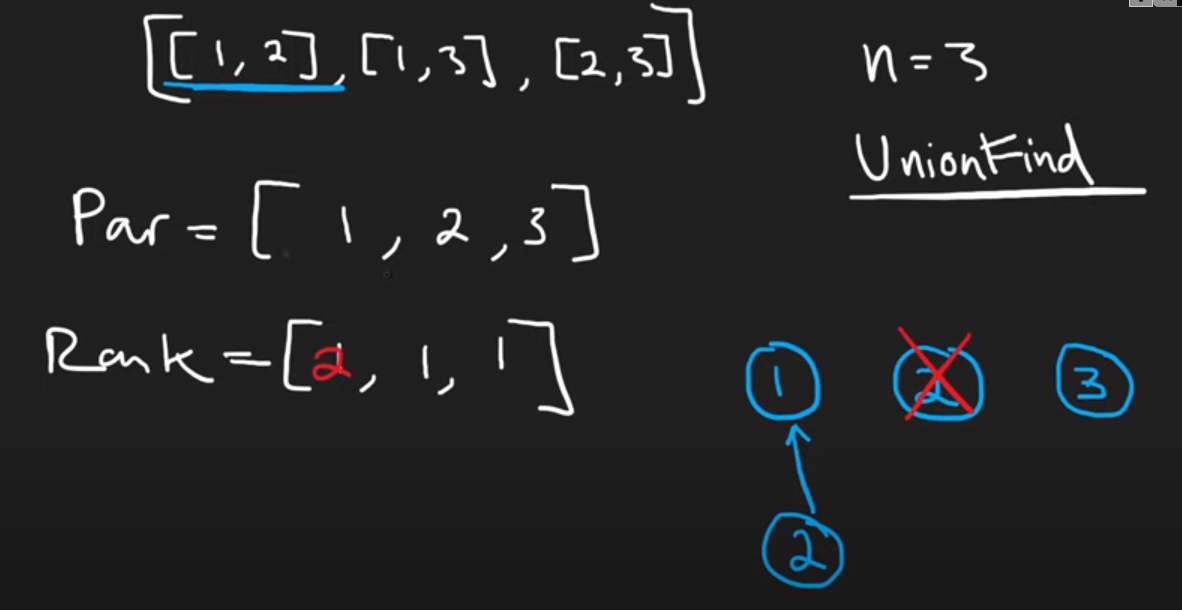 [[1,2], [1,3], [2,3]]
n=3
UnionFind
Par = [ 1, 2, 3 ]
Rank = [ 2, 1, 1 ]
1 2 3
2